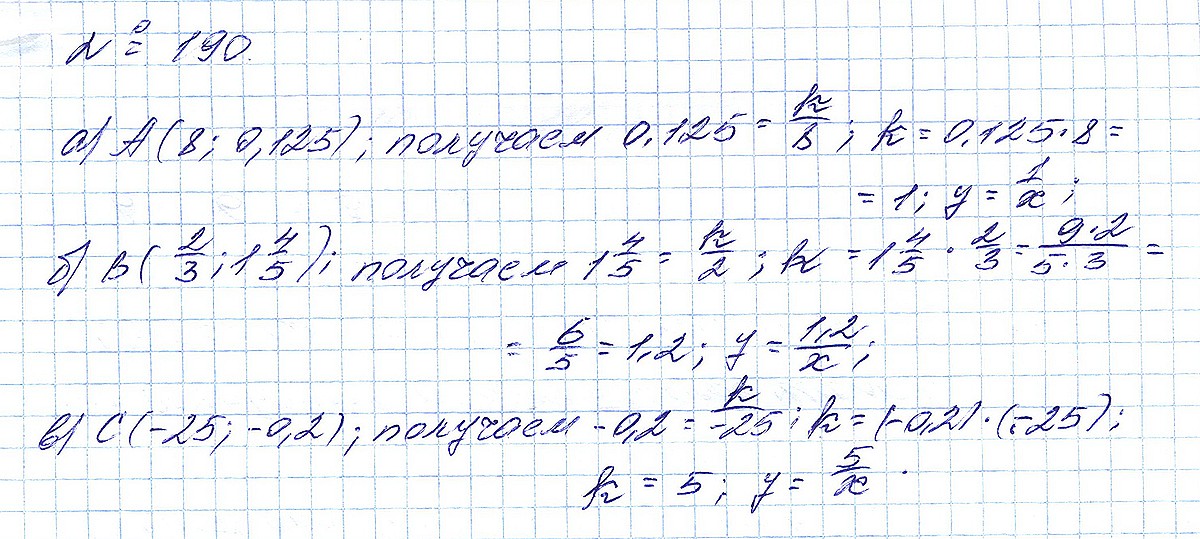 № 190.
а) A(8; 0,125); получаем 0,125 = k/8; k = 0,125·8 =
= 1; y = 1/x;
б) B(2/3; 1 4/5); получаем 1 4/5 = k/2; k = 1 4/5 · 2/3 = 9·2/5·3 =
= 6/5 = 1,2; y = 1,2/x;
в) C(-25; -0,2); получаем -0,2 = k/-25; k = (-0,2)·(-25);
k = 5; y = 5/x.